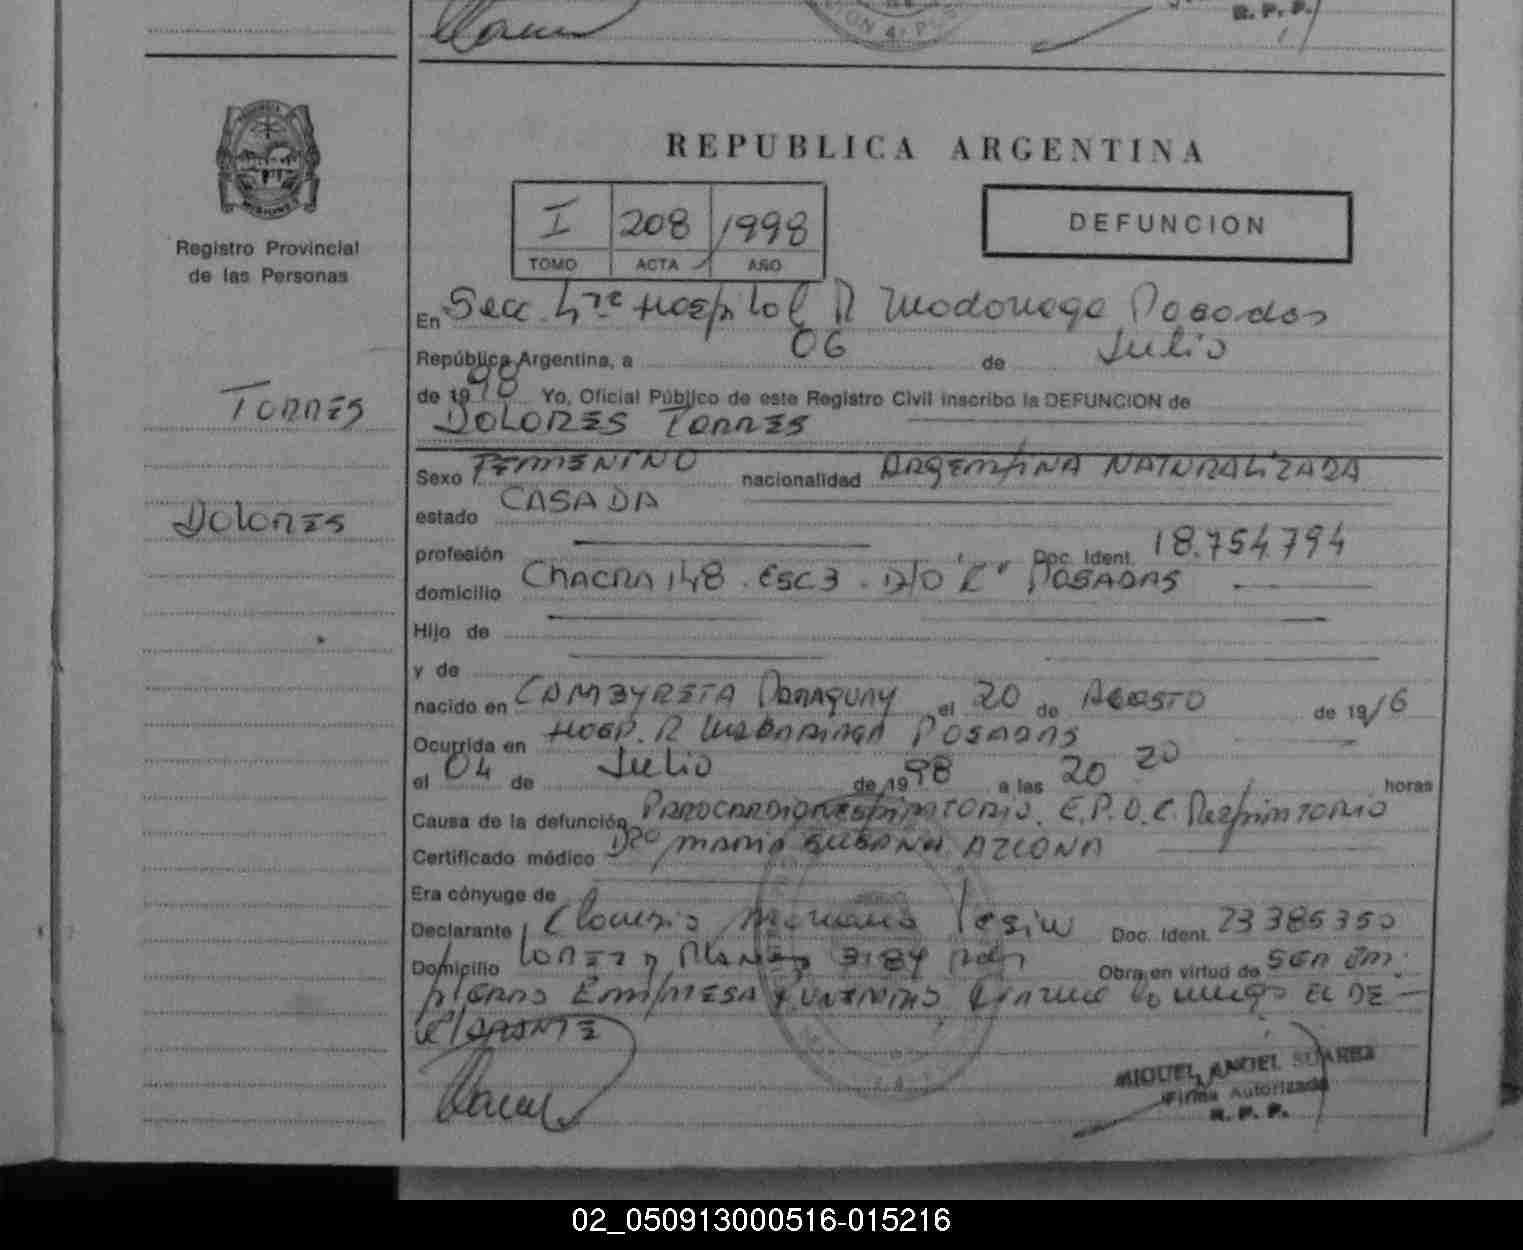 R. P. P.
REPUBLICA ARGENTINA
MISIONES
Registro Provincial
de las Personas
I 208 1998
TOMO ACTA AÑO
DEFUNCION
En Secc. 4ta Hospital R Madariaga Posadas
República Argentina, a 06 de Julio
de 1998 Yo, Oficial Público de este Registro Civil inscribo la DEFUNCION de
TORRES
DOLORES TORRES
Sexo FEMENINO nacionalidad ARGENTINA NATURALIZADA
DOLORES
estado CASADA
profesión Doc. Ident. 18.754.794
domicilio CHACRA 148 . ESC 3 . D/O "C" POSADAS
Hijo de
y de
nacido en CAMBYRETA PARAGUAY el 20 de AGOSTO de 1916
Ocurrida en HOSP. R MADARIAGA POSADAS
el 04 de Julio de 1998 a las 20 20 horas
Causa de la defunción PAROCARDIORESPIRATORIO. E.P.O.C. Respiratorio
Certificado médico Dra MARIA SUSANA AZCONA
Era cónyuge de
Declarante Mariano Doc. Ident. 23385350
Domicilio 3184 Obra en virtud de SER EM-
PLEADO EMPRESA FUNERARIA EL DE-
CLARANTE
MIGUEL ANGEL SUAREZ
Firma Autorizada
R. P. P.
02_050913000516-015216